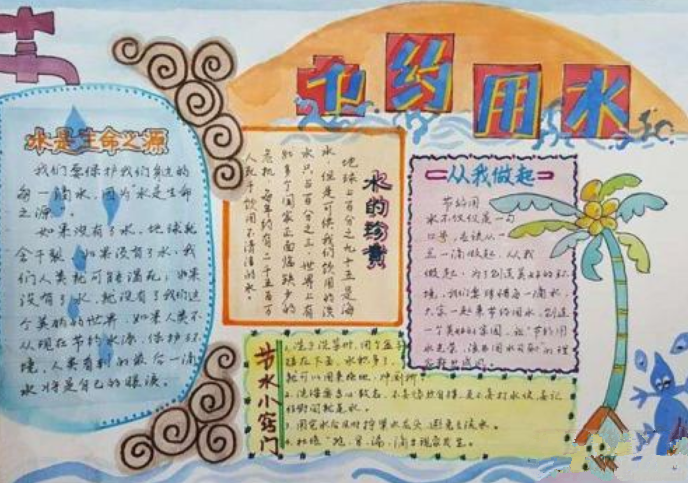 节约用水
水是生命之源
我们要保护我们身边的
每一滴水，因为"水是生命
之源"。
如果没有了水，地球就
会干裂，如果没有了水，我
们人类就可能渴死，如果
没有了水，就没有了我们这
个美丽的世界，如果人类不
从现在节约水源，保护环
境，人类看到的最后一滴
水将是自己的眼泪。
水的珍贵
地球上百分之九十五是海
水，但是可供我们饮用的淡
水只占百分之三，世界上有
80多个国家正面临缺乏的
危机，每年约有二千五百万
人死于饮用不清洁的水。
从我做起
节约用
水不仅仅是一句
口号，应该从一
点一滴做起，从我
做起，为了创造美好的环
境，我们要珍惜每一滴水，
大家一起来节约用水，创造
一个美好的家园，让"节约用
水光荣，浪费用水可耻"的理
节水小窍门
1.洗手洗菜时，用个盆子
接在下面，水积多了，
就可以用来拖地，冲厕所！
2.洗澡要专心致志，不要悠然自得，更不要打水仗，要记
住时间就是水。
3.用完水后及时拧紧水龙头，避免了流水。
4.杜绝"跑、冒、滴、漏"的现象发生。